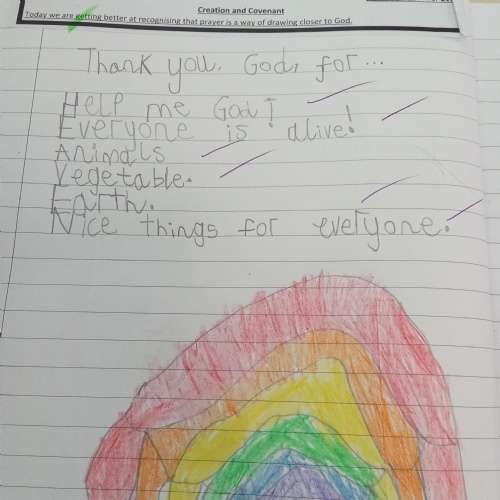 Creation and Covenant
Today we are getting better at recognising that prayer is a way of drawing closer to God.
Thank you. God, for...
Help me God!
Everyone is alive!
Animals
Vegetable.
Earth.
Nice things for everyone.